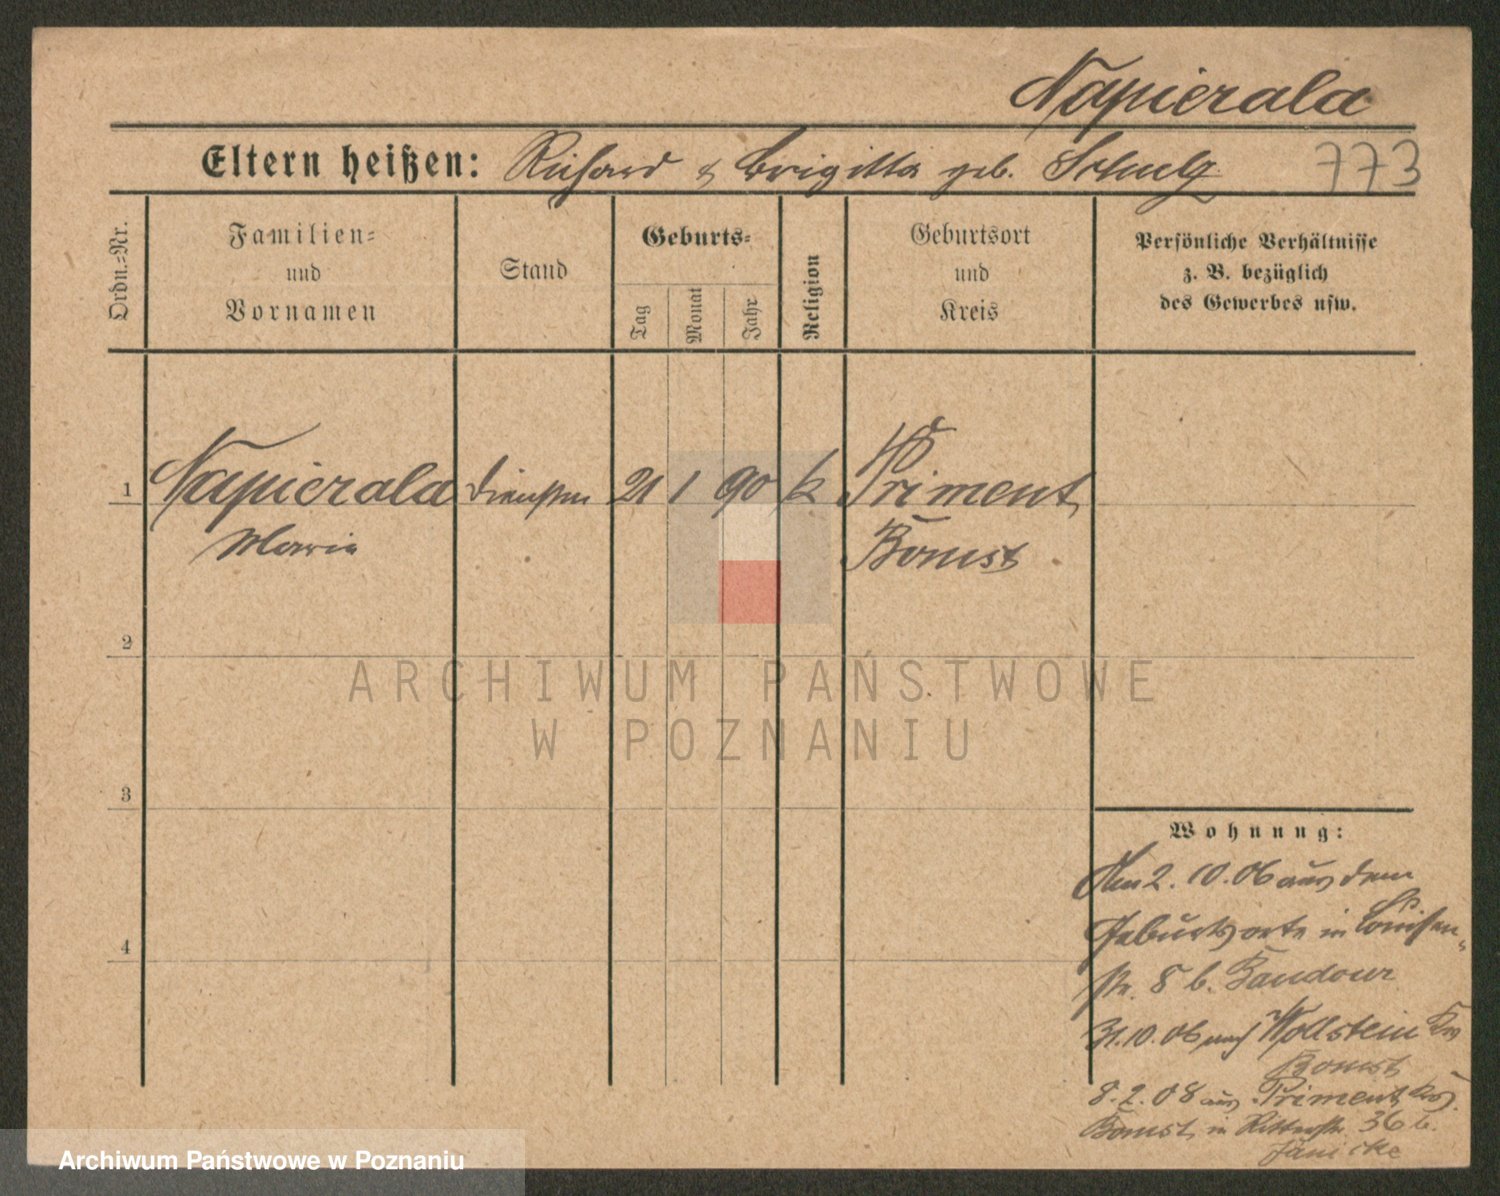 Napierala
Eltern heißen: Richard & Brigitta geb. Schulz
773
Ordn.-Nr.
Familien-
und
Vornamen
Stand
Geburts-
Tag
Monat
Jahr
Religion
Geburtsort
und
Kreis
Persönliche Verhältnisse
z. B. bezüglich
des Gewerbes usw.
1 Napierala 21 1 90 k Priment
Maria Bomst
2
3
4
Wohnung:
Am 2.10.06 aus dem
Geburtsorte in Louisen-
str. 8 b. Bandour
31.10.06 nach Wollstein Krs
Bomst
8.2.08 aus Priment Krs.
Bomst in Ritterstr. 36 b.
Jänicke
ARCHIWUM PAŃSTWOWE
W POZNANIU
Archiwum Państwowe w Poznaniu